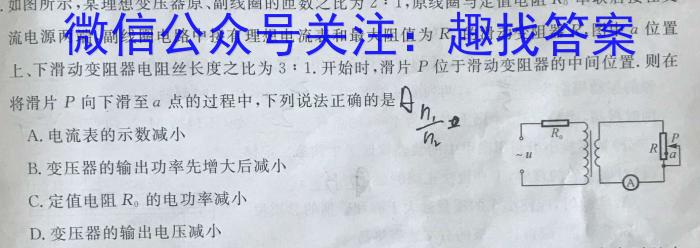 如图所示,某理想变压器原、副线圈的匝数之比为2:1,原线圈与定值电阻R₀串联后接在交
流电源两
微信公众号关注：趣找答案
位置
上、下滑动变阻器电阻丝长度之比为3:1.开始时,滑片P位于滑动变阻器的中间位置.则在
将滑片P向下滑至a点的过程中,下列说法正确的是 A
n₁
n₂
A.电流表的示数减小
B.变压器的输出功率先增大后减小
C.定值电阻R₀的电功率减小
D.变压器的输出电压减小
R₀
~u
R
P
a
A